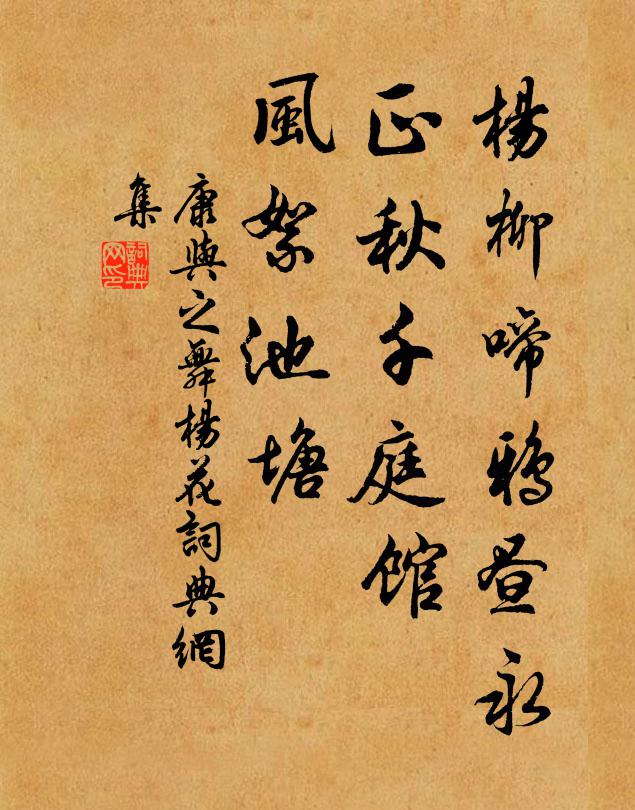 楊柳啼鴉晝永
正秋千庭館
風絮池塘
康與之舞楊花詞典網
集
詞典
网印